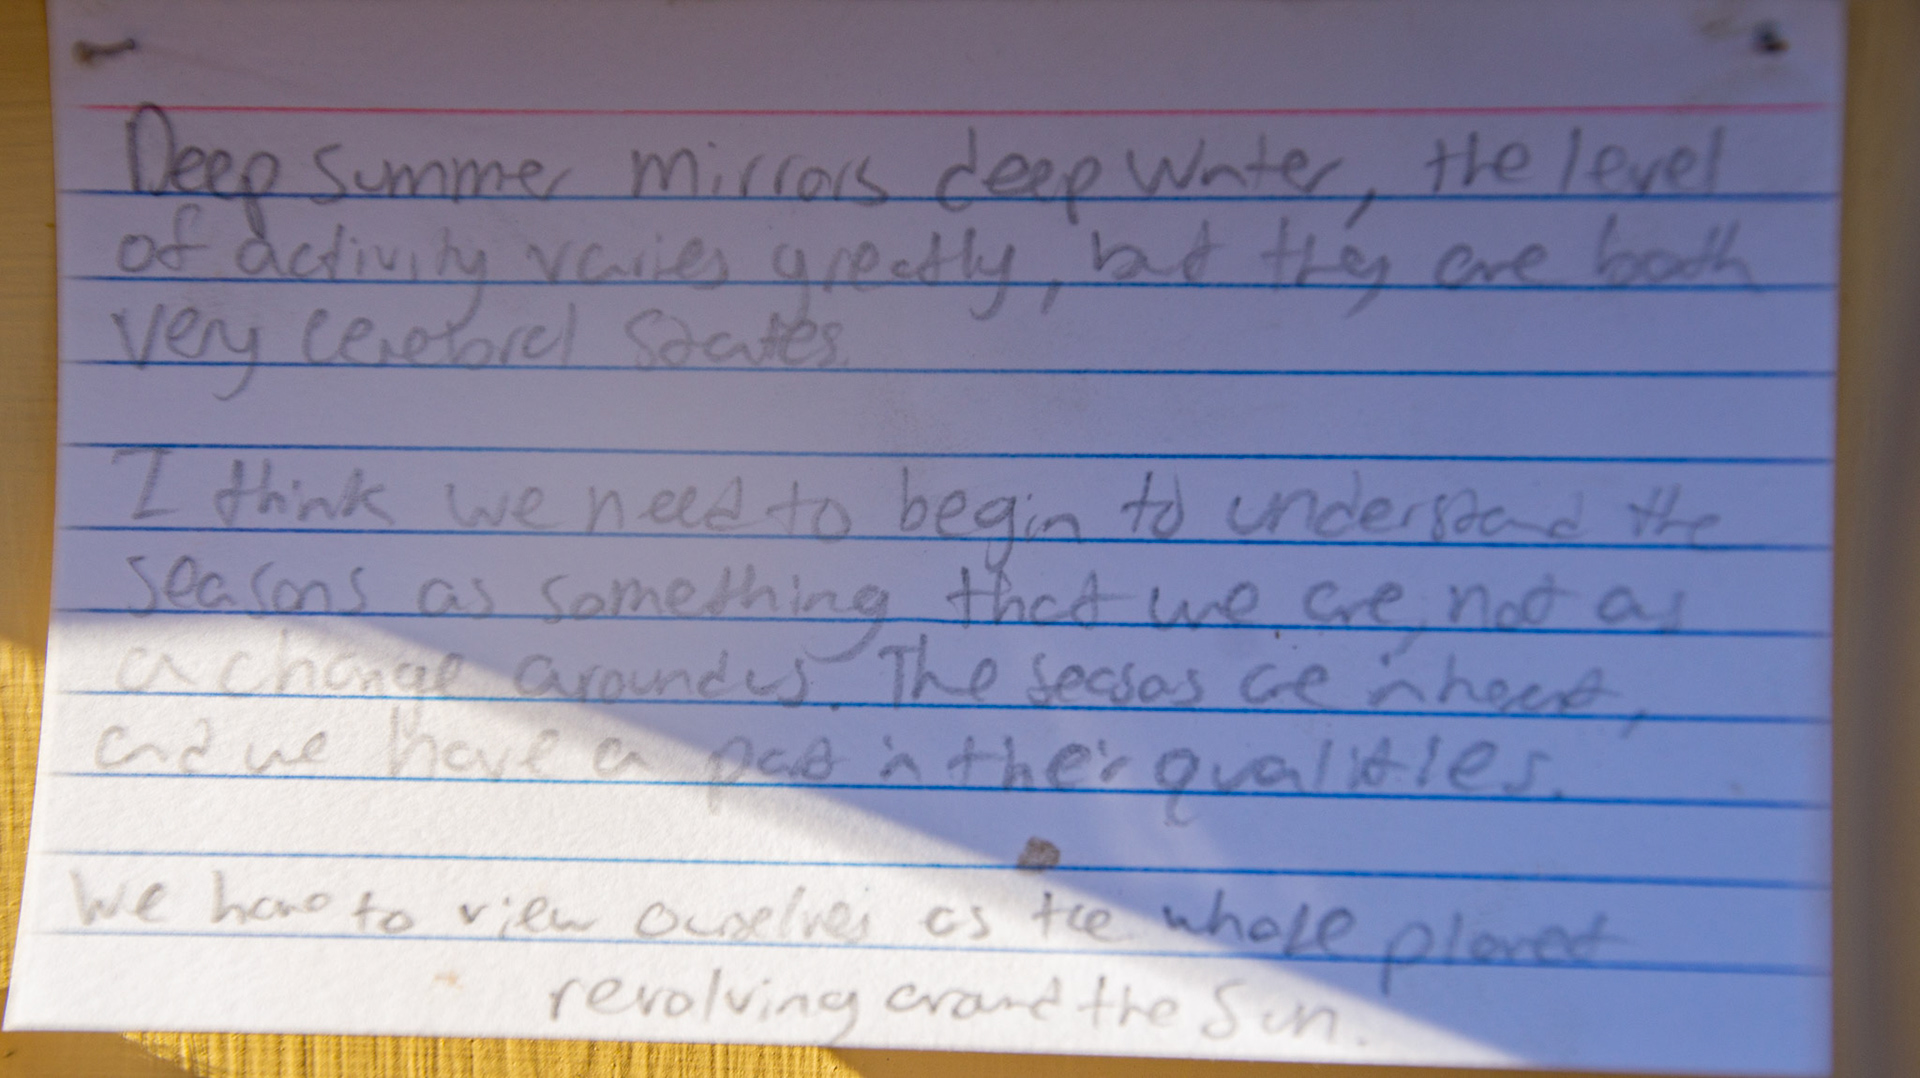 Deep summer mirrors deep winter, the level
of activity varies greatly, but they are both
very cerebral states.
I think we need to begin to understand the
seasons as something that we are, not as
a change around us. The seasons are inherent,
and we have a part in their qualities.
We have to view ourselves as the whole planet
revolving around the Sun.